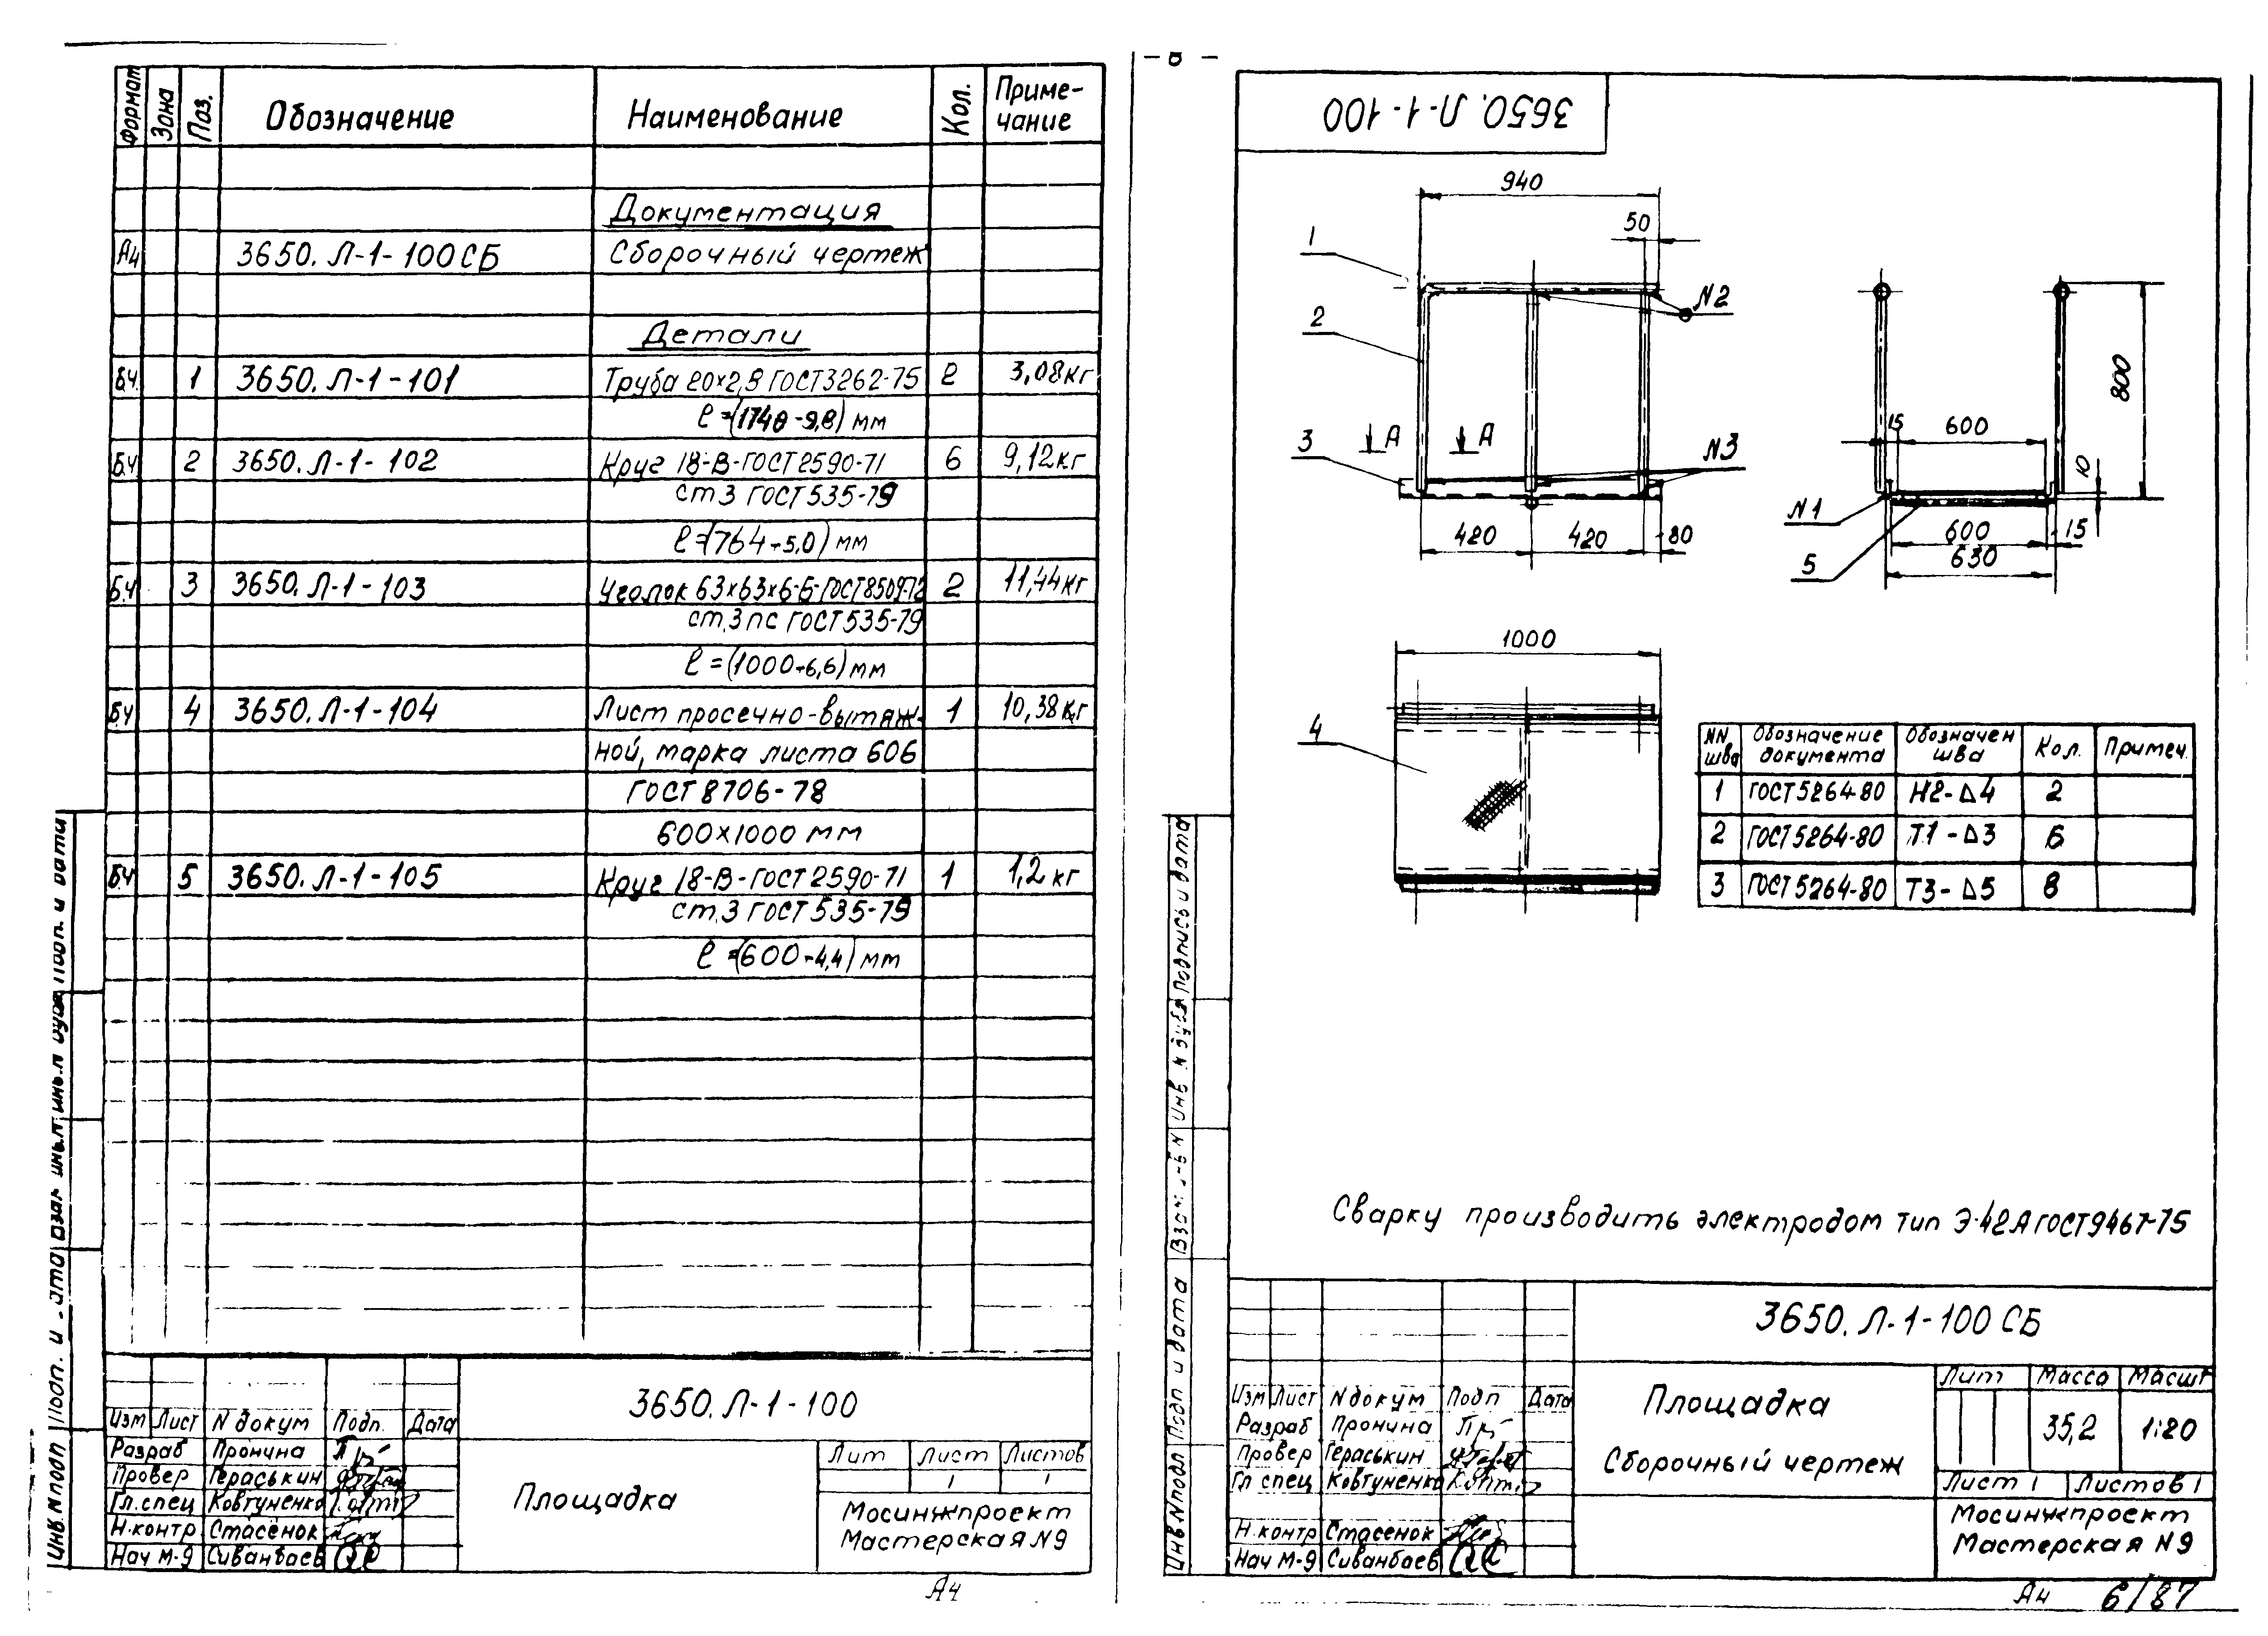 Формат Зона Поз. Обозначение Наименование Кол. Приме-
чание
Документация
А4 3650. Л-1-100СБ Сборочный чертеж
Детали
Б.Ч. 1 3650. Л-1-101 Труба 20х2,8 ГОСТ3262-75 2 3,08кг
Б.Ч 2 3650. Л-1-102 Круг 18-В-ГОСТ2590-71 6 9,12кг
ст3 ГОСТ535-79
ℓ=(764-5,0)мм
Б.Ч 3 3650. Л-1-103 Уголок 63х63х6-Б-ГОСТ8509-72 2 11,44кг
ст.3пс ГОСТ535-79
ℓ=(1000-6,6)мм
Б.Ч 4 3650. Л-1-104 Лист просечно-вытяж- 1 10,38кг
ной, марка листа 606
ГОСТ 8706-78
600х1000 мм
Б.Ч 5 3650. Л-1-105 Круг 18-В-ГОСТ2590-71 1 1,2кг
ст.3 ГОСТ535-79
ℓ=(600-4,4)мм
3650. Л-1-100
Изм Лист N докум Подп. Дата
Разраб Пронина
Провер Гераськин
Гл.спец Ковтуненко
Н.контр Стасенок
Нач М-9 Сиванбаев
Площадка
Лит Лист Листов
1 1
Мосинжпроект
Мастерская N9
А4
Инв. N подп
3650. Л-1-100
940
50
1
2
3
N2
А А
N3
420 420 80
800
15 600
10
N1
600 15
630
5
1000
4
NN шва Обозначение документа Обозначен шва Кол. Примеч.
1 ГОСТ5264-80 Н2-Δ4 2
2 ГОСТ5264-80 Т1-Δ3 6
3 ГОСТ5264-80 Т3-Δ5 8
Сварку производить электродом тип Э-42А ГОСТ9467-75
3650. Л-1-100 СБ
Изм Лист N докум Подп Дата
Разраб Пронина
Провер Гераськин
Гл спец Ковтуненко
Н.контр Стасенок
Нач М-9 Сиванбаев
Площадка
Сборочный чертеж
Лит Масса Масшт
35,2 1:20
Лист 1 Листов 1
Мосинжпроект
Мастерская N9
Инв N подл Подп и дата
Подпись и дата
А4 6/87